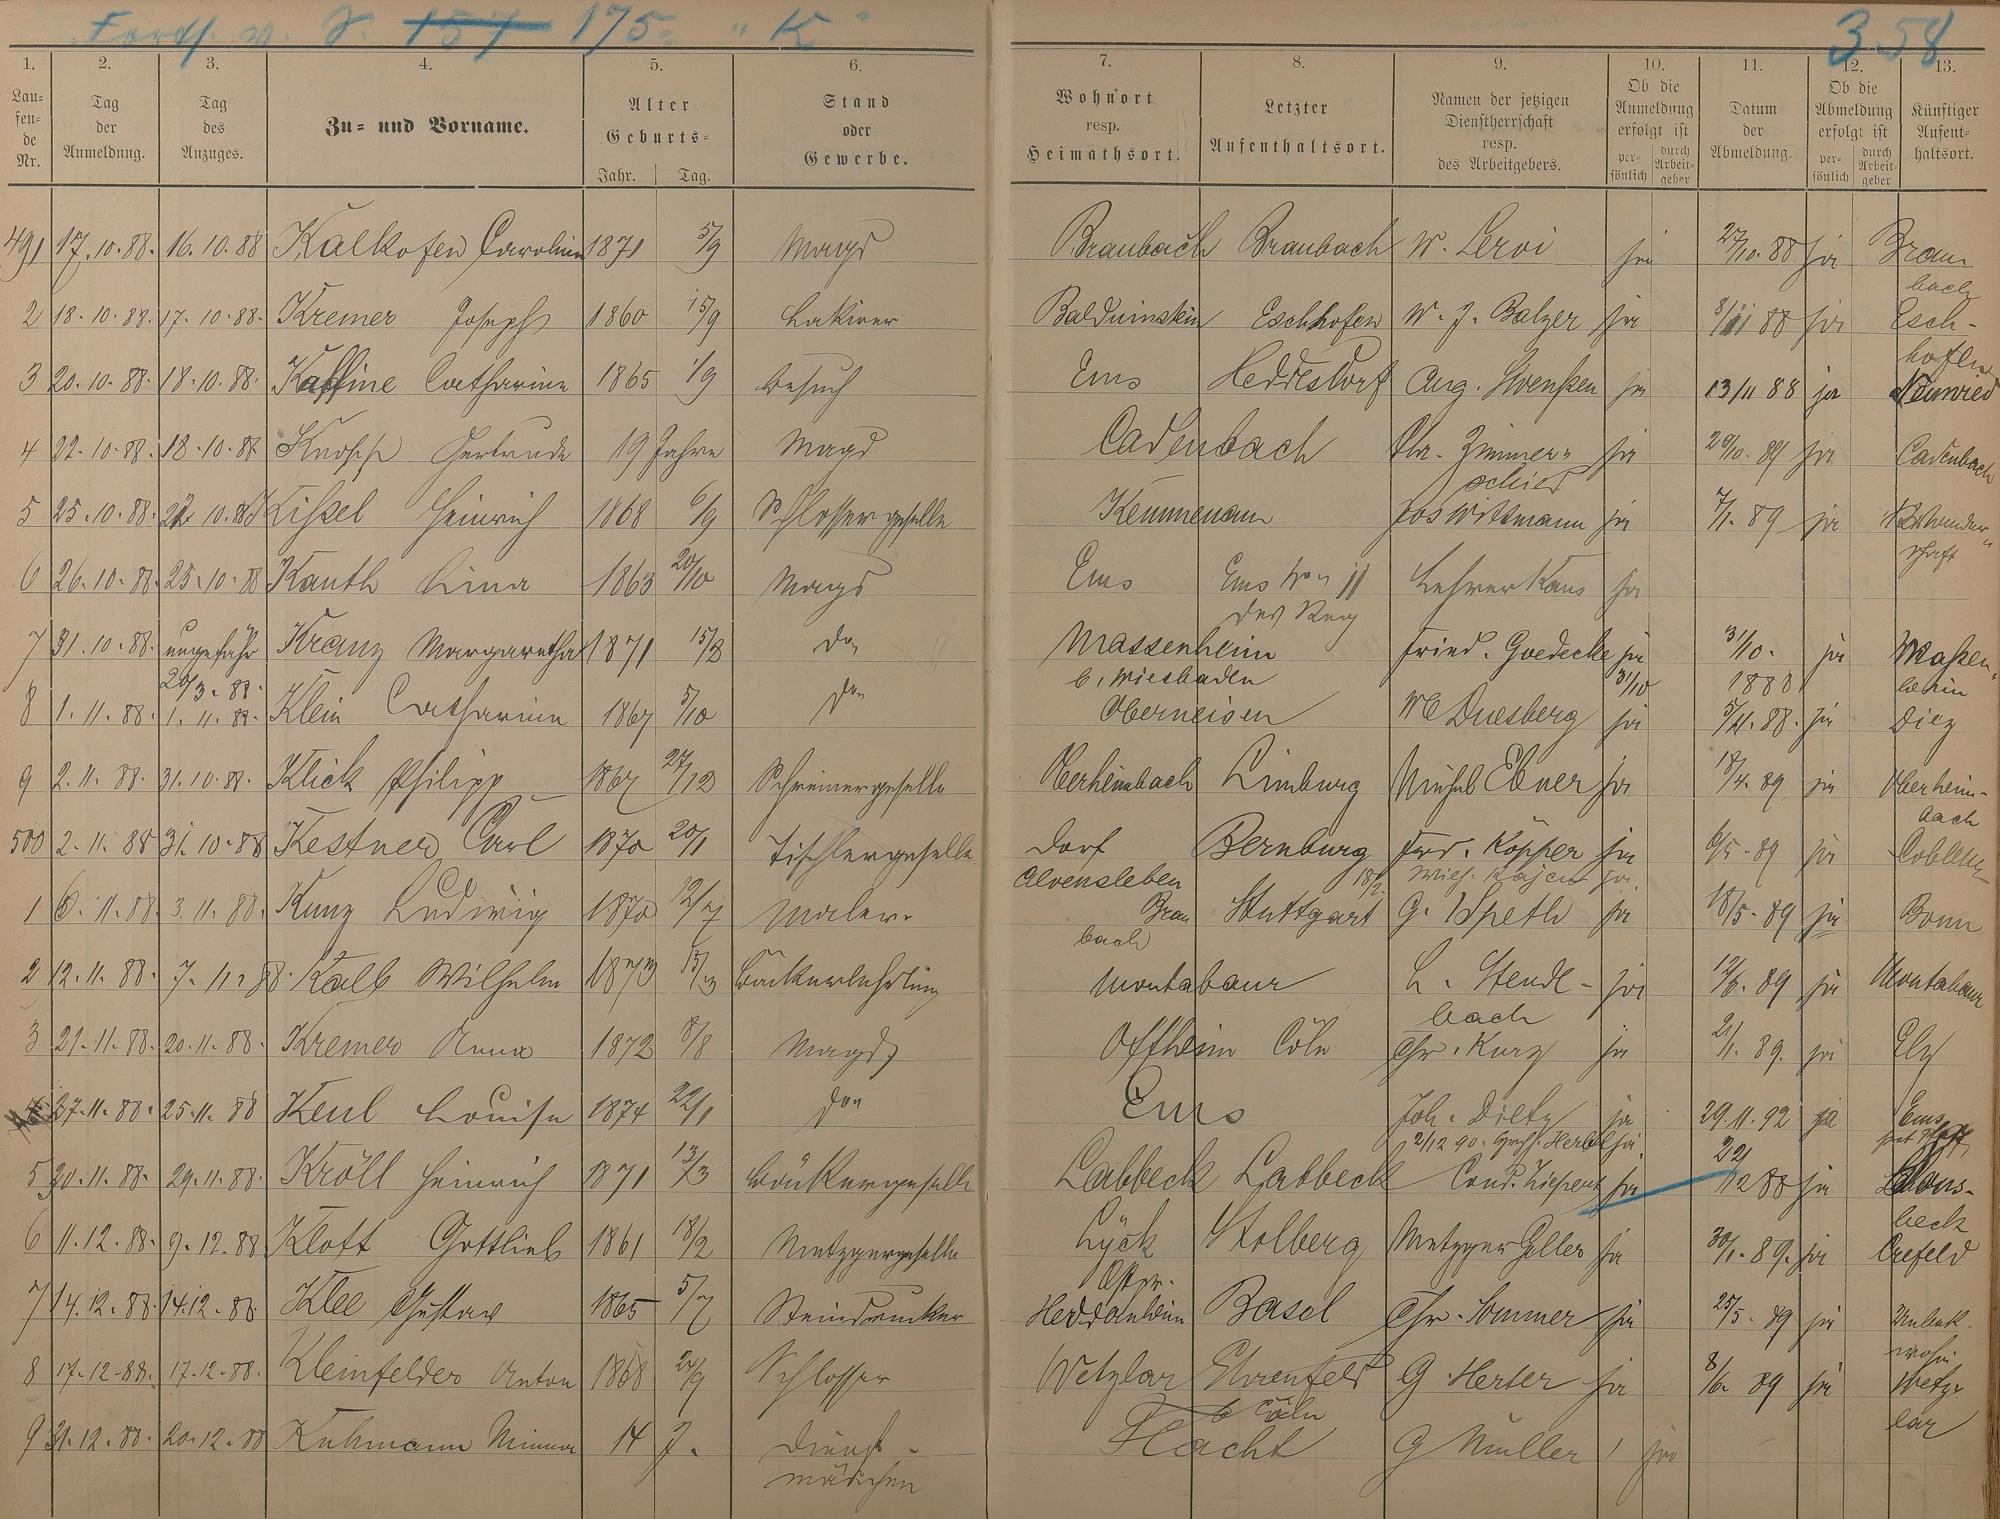 Forts. v. S. 157 175. "K"
358
1. 2. 3. 4. 5. 6. 7. 8. 9. 10. 11. 12. 13.
Laufende Nr.
Tag der Anmeldung.
Tag des Anzuges.
Zu= und Vorname.
Alter Geburts=
Jahr. Tag.
Stand oder Gewerbe.
Wohnort resp. Heimathsort.
Letzter Aufenthaltsort.
Namen der jetzigen Dienstherrschaft resp. des Arbeitgebers.
Ob die Anmeldung erfolgt ist
persönlich durch Arbeitgeber
Datum der Abmeldung.
Ob die Abmeldung erfolgt ist
persönlich durch Arbeitgeber
Künftiger Aufenthaltsort.
491 17.10.88. 16.10.88 Kalkofen Carolina 1871 5/9 Magd Braubach Braubach W. Leroi ja 27/10.88 ja Braubach
2 18.10.88. 17.10.88. Kremer Joseph 1860 15/9 Lakirer Balduinstein Eschhofen W. J. Balzer ja 3/11 88 ja Eschhofen
3 20.10.88. 18.10.88. Kaffine Catharina 1865 1/9 Besuch Ems Heddesdorf Aug. ja 13/11 88 ja Neuwied
4 22.10.88. 18.10.88. Gertrude 19 Jahre Magd Cadenbach Chr. Zimmerschied ja 29/10.89 ja Cadenbach
5 25.10.88. 22.10.88 Kissel Heinrich 1868 6/9 Schlossergeselle Kemmenau Jos Wittmann ja 7/1.89 ja
6 26.10.88. 25.10.88 Kauth Lina 1863 20/10 Magd Ems Ems Lehrer Kaus ja
7 31.10.88. ungefähr 20/3.88. Kranz Margaretha 1871 15/8 do Massenheim b. Wiesbaden Fried. Goedecke ja 31/10 31/10. 1888 ja Maßenheim
8 1.11.88. 1.11.88. Klein Catharina 1867 5/10 do Oberneisen We Duesberg ja 5/11.88. ja Diez
9 2.11.88. 31.10.88. Klick Philipp 1867 27/12 Schreinergeselle Oberheimbach Limburg Michel Ebner ja 18/4.89 ja Oberheimbach
500 2.11.88 31.10.88 Kestner Carl 1870 20/1 Tischlergeselle Dorf Alvensleben Bernburg Ferd. Köpper ja 6/5.89 ja Coblenz
1 6.11.88. 3.11.88. Kunz Ludwig 1870 12/7 Maler. Braubach Stuttgart G. Speth ja 18/5.89 ja Bonn
2 12.11.88. 7.11.88. Kalb Wilhelm 1873 15/3 Bäckerlehrling Montabaur L. Stendebach ja 12/6.89 ja Montabaur
3 21.11.88. 20.11.88. Kremer Anna 1872 8/8 Magd Offheim Cöln Chr. Kurz ja 2/1.89. ja Elz
4 27.11.88. 25.11.88 Keul Louise 1874 22/1 do Ems Joh. Dietz ja 29.11.92 ja Ems
2/12 90. ja.
5 30.11.88. 29.11.88. Kröll Heinrich 1871 13/3 Bäckergeselle Labbeck Labbeck Cond. ja 22/12 88 ja
6 11.12.88. 9.12.88 Klott Gottlieb 1861 18/2 Metzgergeselle Lyck Ostpr. Stolberg Metzger Geller ja 30/1.89. ja Crefeld
7 14.12.88. 14.12.88. Klee Gustav 1865 5/7 Steindrucker Heddernheim Basel Chr. Sommer ja 25/5.89 ja Unbek. wohin
8 17.12.88. 17.12.88. Kleinfelder Anton 1868 24/9 Schlosser Wetzlar Ehrenfeld b Cöln G Herber ja 8/6.89 ja Wetzlar
9 31.12.88. 20.12.88 Kuhmann Minna 14 J. Dienstmädchen Flacht G Müller 1 ja